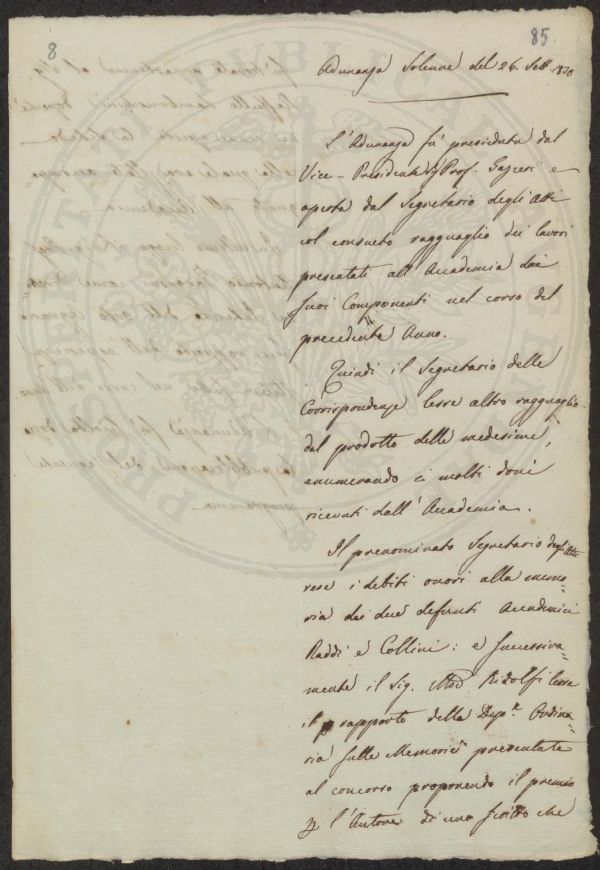 8
85
Adunanza Solenne del 26. Sett. 1830
L'Adunanza fu presieduta dal
Vice-Presidente Sig. Prof. Gazzeri e
aperta dal Segretario degli Atti
col consueto ragguaglio dei lavori
presentati all'Accademia dai
suoi Componenti nel corso del
precedente Anno.
Quindi il Segretario delle
Corrispondenze lesse altro ragguaglio
del prodotto delle medesime,
enumerando i molti doni
ricevuti dall'Accademia.
Il prenominato Segretario degli Atti
rese i debiti onori alla memo-
ria dei due defunti Accademici
Raddi e Collini: e successiva-
mente il Sig. Ridolfi lesse
il rapporto della Dep.e Ordina-
ria sulle Memorie presentate
al concorso proponendo il premio
l'Autore di uno scritto che